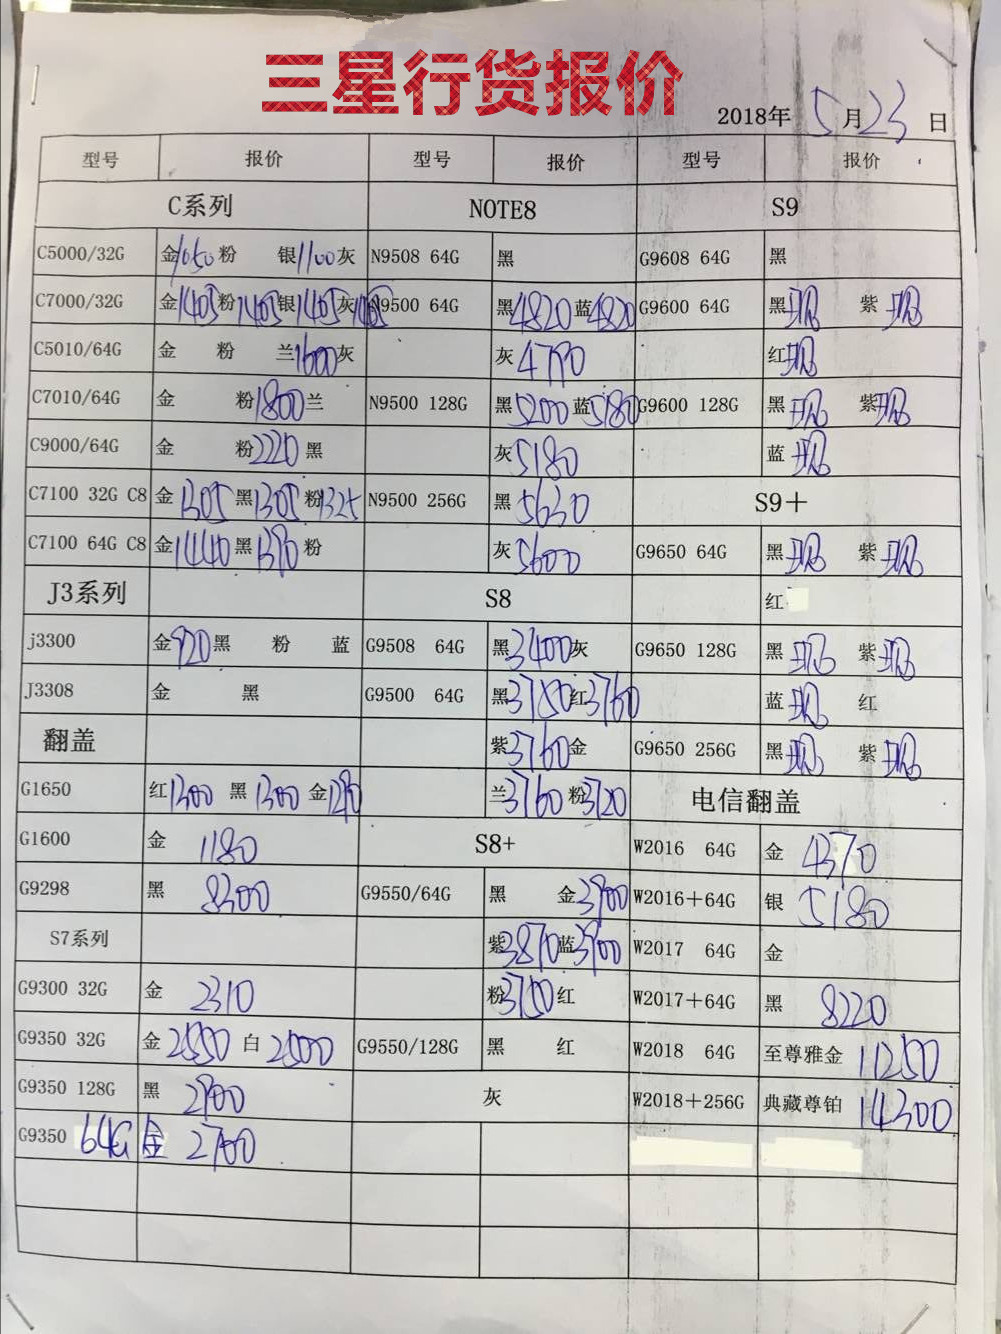 三星行货报价
2018年 5月23日
型号 报价 型号 报价 型号 报价
C系列 NOTE8 S9
C5000/32G 金1050 粉 银1100 灰 N9508 64G 黑 G9608 64G 黑
C7000/32G 金1405 粉1405 银1405 灰1405 N9500 64G 黑4820 蓝4820 G9600 64G 黑现 紫现
C5010/64G 金 粉 兰1600 灰 灰4790 红现
C7010/64G 金 粉1800 兰 N9500 128G 黑5200 蓝5180 G9600 128G 黑现 紫现
C9000/64G 金 粉2220 黑 灰5180 蓝现
C7100 32G C8 金1305 黑1305 粉1325 N9500 256G 黑5630 S9+
C7100 64G C8 金1440 黑1390 粉 灰5600 G9650 64G 黑现 紫现
J3系列 S8 红
j3300 金920 黑 粉 蓝 G9508 64G 黑3400 灰 G9650 128G 黑现 紫现
J3308 金 黑 G9500 64G 黑3750 红3760 蓝现 红
翻盖 紫3760 金 G9650 256G 黑现 紫现
G1650 红1300 黑1300 金1290 兰3760 粉3720 电信翻盖
G1600 金 1180 S8+ W2016 64G 金 4370
G9298 黑 8300 G9550/64G 黑 金3900 W2016+64G 银 5180
S7系列 紫3870 蓝3900 W2017 64G 金
G9300 32G 金 2310 粉3750 红 W2017+64G 黑 8220
G9350 32G 金2550 白2500 G9550/128G 黑 红 W2018 64G 至尊雅金 11250
G9350 128G 黑 2900 灰 W2018+256G 典藏尊铂 14300
G9350 64G 金 2700